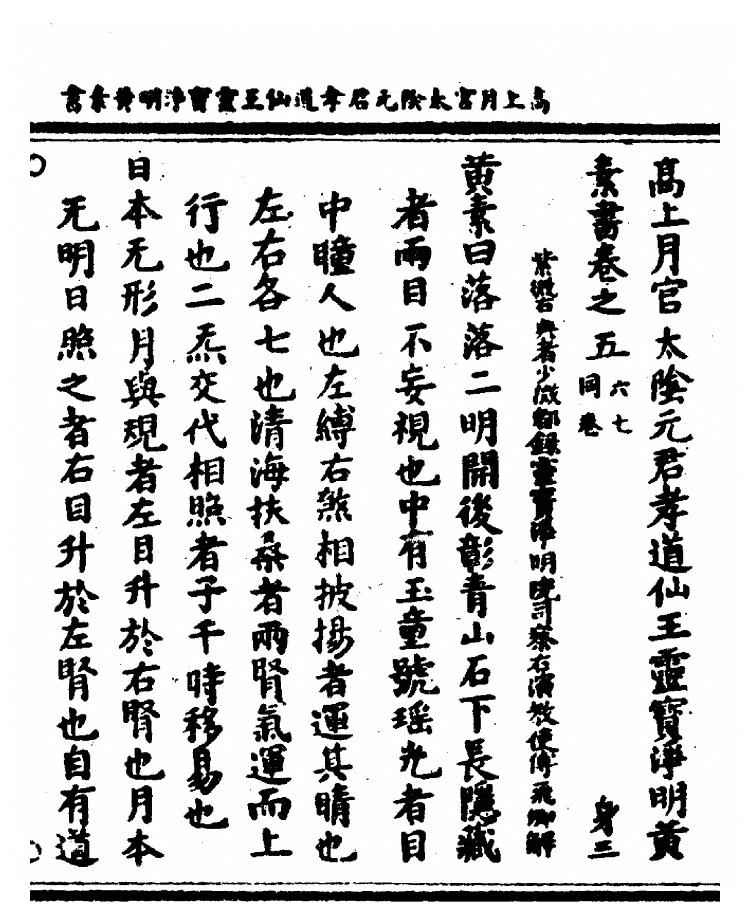 高上月宮太陰元君孝道仙王靈寶淨明黃素書
高上月宮太陰元君孝道仙王靈寶淨明黃
素書卷之五 六七同卷 身三
紫微 者少微都錄靈寶淨明 右演教使傅飛卿解
黃素曰落落二明開後彰青山石下長隱藏
者兩目不妄視也中有玉童號瑤光者目
中瞳人也左縛右煞相披揚者運其睛也
左右各七也清海扶桑者兩腎氣運而上
行也二炁交代相照者子午時移易也
日本无形月與現者左目升於右腎也月本
无明日照之者右目升於左腎也自有道